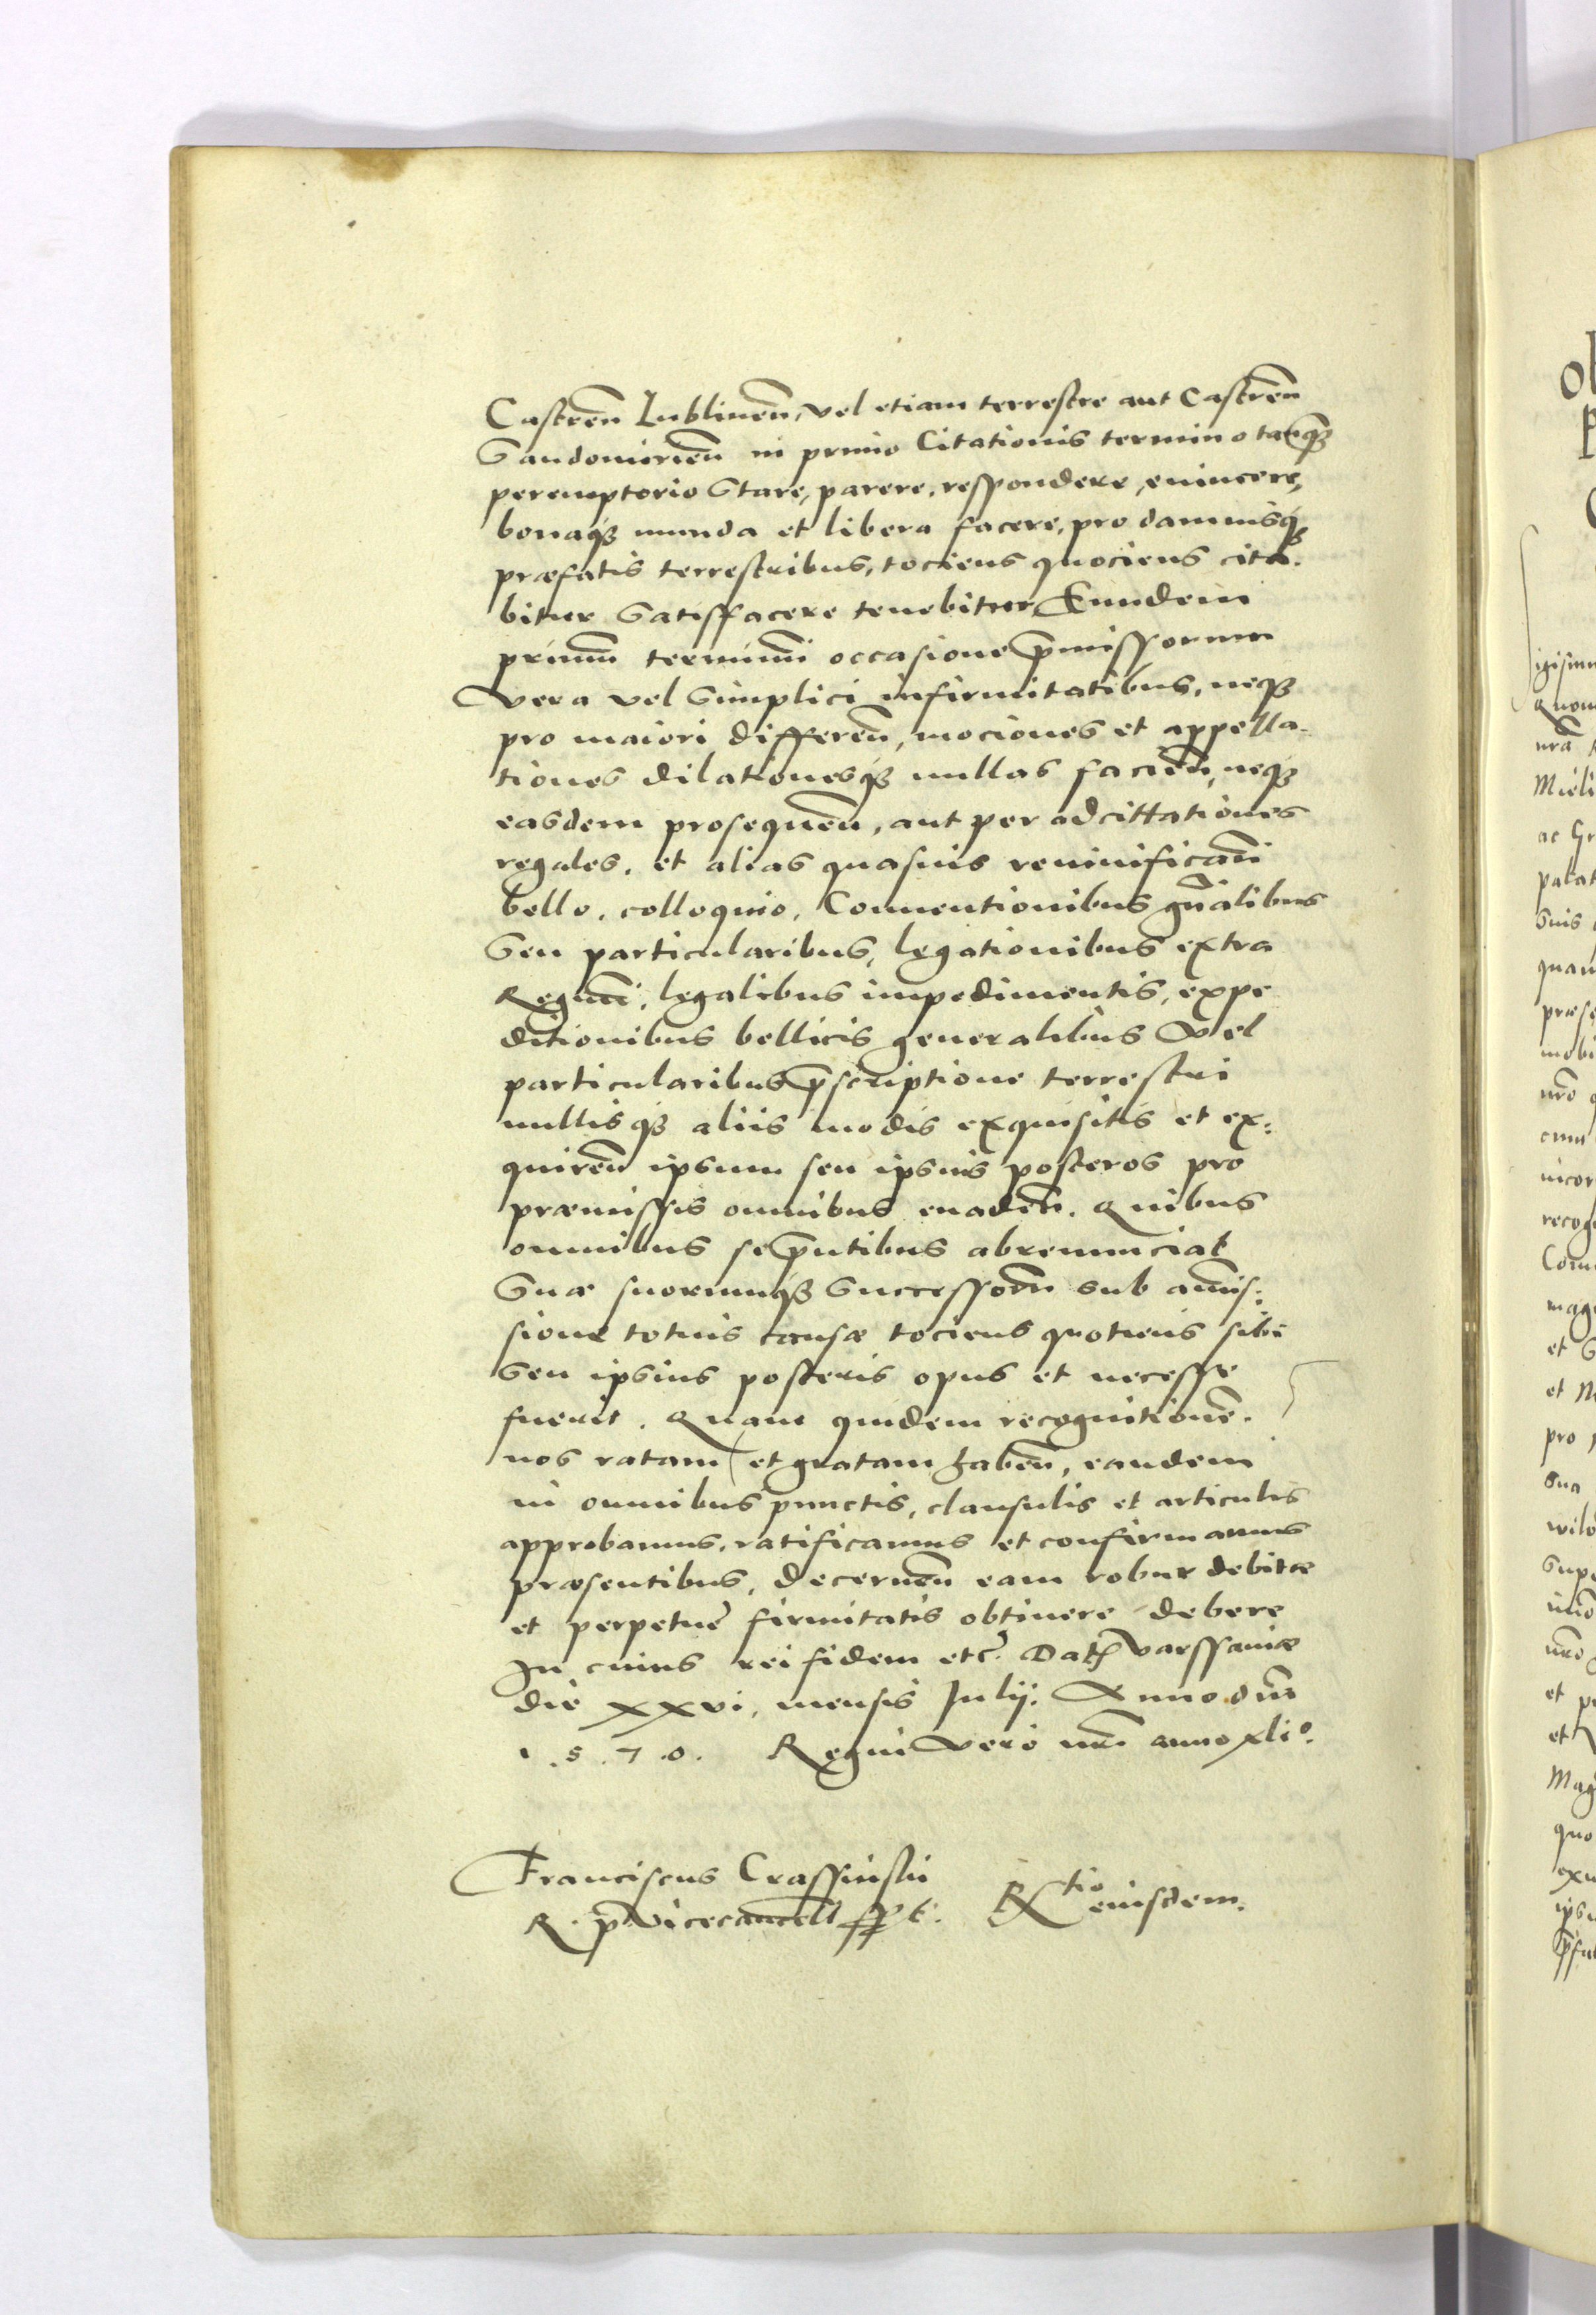 Castren̄ Lublinen̄, vel etiam terrestre aut Castren̄
Sandomirien̄ in primo Citationis termino tanqꝫ
peremptorio Stare, parere, respondere, euincere,
bonaqꝫ munda et libera facere, pro damnisqꝫ
præfatis terrestribus, tociens quociens cita-
bitur Satisffacere tenebitur, Eundem
primum̄ terminum̄ occasione p̄missorum
vera vel Simplici infirmitatibus, neqꝫ
pro maiori differen̄, mociones et appella-
tiones dilationesqꝫ nullas facien̄, neqꝫ
easdem prosequen̄, aut per adcittationes
regales, et alias quasuis reuiuifican̄
bello, colloquio, Conuentionibus gn̄alibus
Seu particularibus, legationibus extra
Regnum̄, legalibus impedimentis, expe
ditionibus bellicis generalibus vel
particularibus p̄scriptione terrestri
nullisqꝫ aliis modis exquisitis et ex:
quiren̄ ipsum seu ipsius posteros pro
præmissis omnibus euaden̄. Quibus
omnibus se p̄ntibus abrenunciat
Suæ suorumqꝫ Successorum̄ sub amis:
sione totius causæ tociens quotiens sibi
Seu ipsius posteris opus et necesse
fuerit. Quam quidem recognitionē.
nos ratam et gratam haben̄, eandem
in omnibus punctis, clausulis et articulis
approbamus, ratificamus et confirmamus
præsentibus, decernen̄ eam robur debitæ
et perpetuę firmitatis obtinere debere
In cuius rei fidem etc̄. Datꝭ Varssauiæ
die xxvi, mensis Julij. Anno dn̄i
1.5.7.0. Regni vero nr̄i anno xli°.
Franciscus Crassinski
R. p. Vicecancell̄ sspt. Rtio eiusdem.